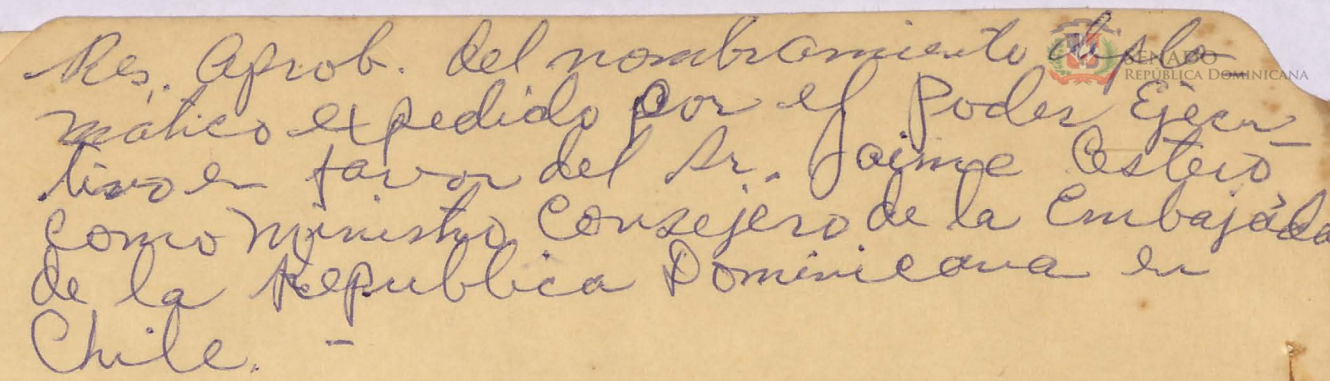 Res. Aprob. del nombramiento diplo-
mático expedido por el Poder Ejecu-
tivo en favor del Sr. Jaime Cestero
como Ministro Consejero de la Embajada
de la Republica Dominicana en
Chile. -
SENADO
REPÚBLICA DOMINICANA